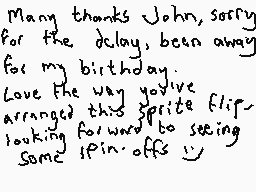 Many thanks John, sorry
for the delay, been away
for my birthday.
Love the way you've
arranged this sprite flip,
looking forward to seeing
some spin-offs ツ